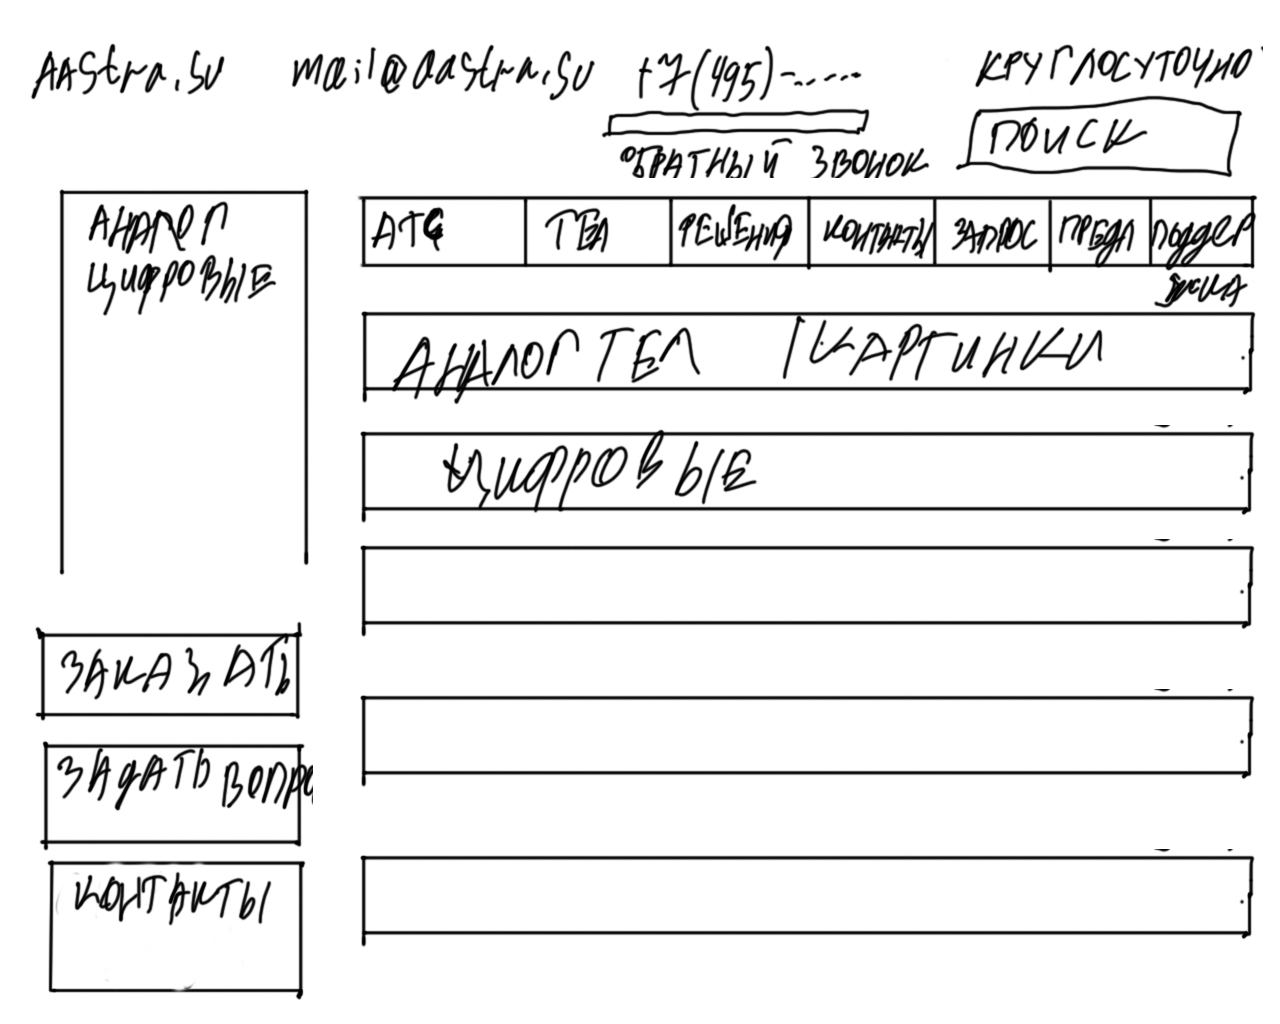 AAstra.su mail@aastra.su +7(495)-...... КРУГЛОСУТОЧНО
ОБРАТНЫЙ ЗВОНОК
ПОИСК
АНАЛОГ
ЦИФРОВЫЕ
АТС ТЕЛ РЕШЕНИЯ КОНТАКТЫ ЗАПРОС ПРЕДЛ ПОДДЕР
ЖКА
АНАЛОГ ТЕЛ | КАРТИНКИ
ЦИФРОВЫЕ
ЗАКАЗАТЬ
ЗАДАТЬ ВОПРО
КОНТАКТЫ